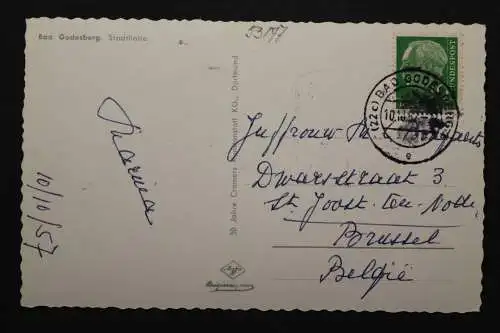 Bad Godesberg, Stadthalle
53/77
Marina
10/10/57
50 Jahre Cramers Kunstanstalt KG., Dortmund
Agfa
BUNDESPOST
(22c) BAD GODESBERG
10.10.57
e
Juffrouw
Dwarsstraat 3
St. Joost-ten-Node
Brussel
België